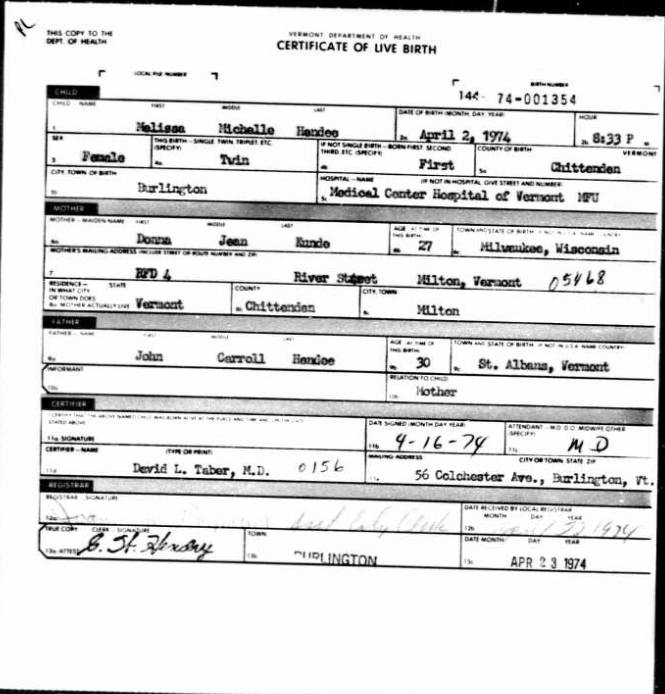 PL
THIS COPY TO THE
DEPT. OF HEALTH
VERMONT DEPARTMENT OF HEALTH
CERTIFICATE OF LIVE BIRTH
LOCAL FILE NUMBER
BIRTH NUMBER
144- 74-001354
CHILD
CHILD - NAME FIRST MIDDLE LAST DATE OF BIRTH (MONTH, DAY, YEAR) HOUR
1. Melissa Michelle Hendee 2a. April 2, 1974 2b. 8:33 P M
SEX THIS BIRTH - SINGLE, TWIN, TRIPLET, ETC. (SPECIFY) IF NOT SINGLE BIRTH - BORN FIRST, SECOND, THIRD, ETC (SPECIFY) COUNTY OF BIRTH VERMONT
3. Female 4a. Twin 4b. First 5a. Chittenden
CITY, TOWN OF BIRTH HOSPITAL - NAME (IF NOT IN HOSPITAL, GIVE STREET AND NUMBER)
5b. Burlington 5c. Medical Center Hospital of Vermont MFU
MOTHER
MOTHER - MAIDEN NAME FIRST MIDDLE LAST AGE AT TIME OF THIS BIRTH TOWN AND STATE OF BIRTH IF NOT IN U.S.A. NAME COUNTRY
6a. Donna Jean Kunde 6b. 27 6c. Milwaukee, Wisconsin
MOTHER'S MAILING ADDRESS (INCLUDE STREET OR ROUTE NUMBER AND ZIP)
7. RFD 4 River Street Milton, Vermont 05468
RESIDENCE - IN WHAT CITY OR TOWN DOES MOTHER ACTUALLY LIVE STATE COUNTY CITY, TOWN
8a. Vermont 8b. Chittenden 8c. Milton
FATHER
FATHER - NAME FIRST MIDDLE LAST AGE AT TIME OF THIS BIRTH TOWN AND STATE OF BIRTH IF NOT IN U.S.A. NAME COUNTRY
9a. John Carroll Hendee 9b. 30 9c. St. Albans, Vermont
INFORMANT RELATION TO CHILD
10a. 10b. Mother
CERTIFIER
I CERTIFY THAT THE ABOVE NAMED CHILD WAS BORN ALIVE AT THE PLACE AND TIME AND ON THE DATE STATED ABOVE
DATE SIGNED (MONTH DAY YEAR) ATTENDANT - M.D. D.O. MIDWIFE OTHER (SPECIFY)
11a. SIGNATURE 11b. 4-16-74 11c. MD
CERTIFIER - NAME (TYPE OR PRINT) MAILING ADDRESS CITY OR TOWN STATE ZIP
11d. David L. Taber, M.D. 0156 11e. 56 Colchester Ave., Burlington, Vt.
REGISTRAR
REGISTRAR SIGNATURE DATE RECEIVED BY LOCAL REGISTRAR MONTH DAY YEAR
12a. Asst City Clerk 12b. April 22 1974
TRUE COPY CLERK - SIGNATURE TOWN DATE MONTH DAY YEAR
13a. ATTEST 13b. BURLINGTON 13c. APR 23 1974